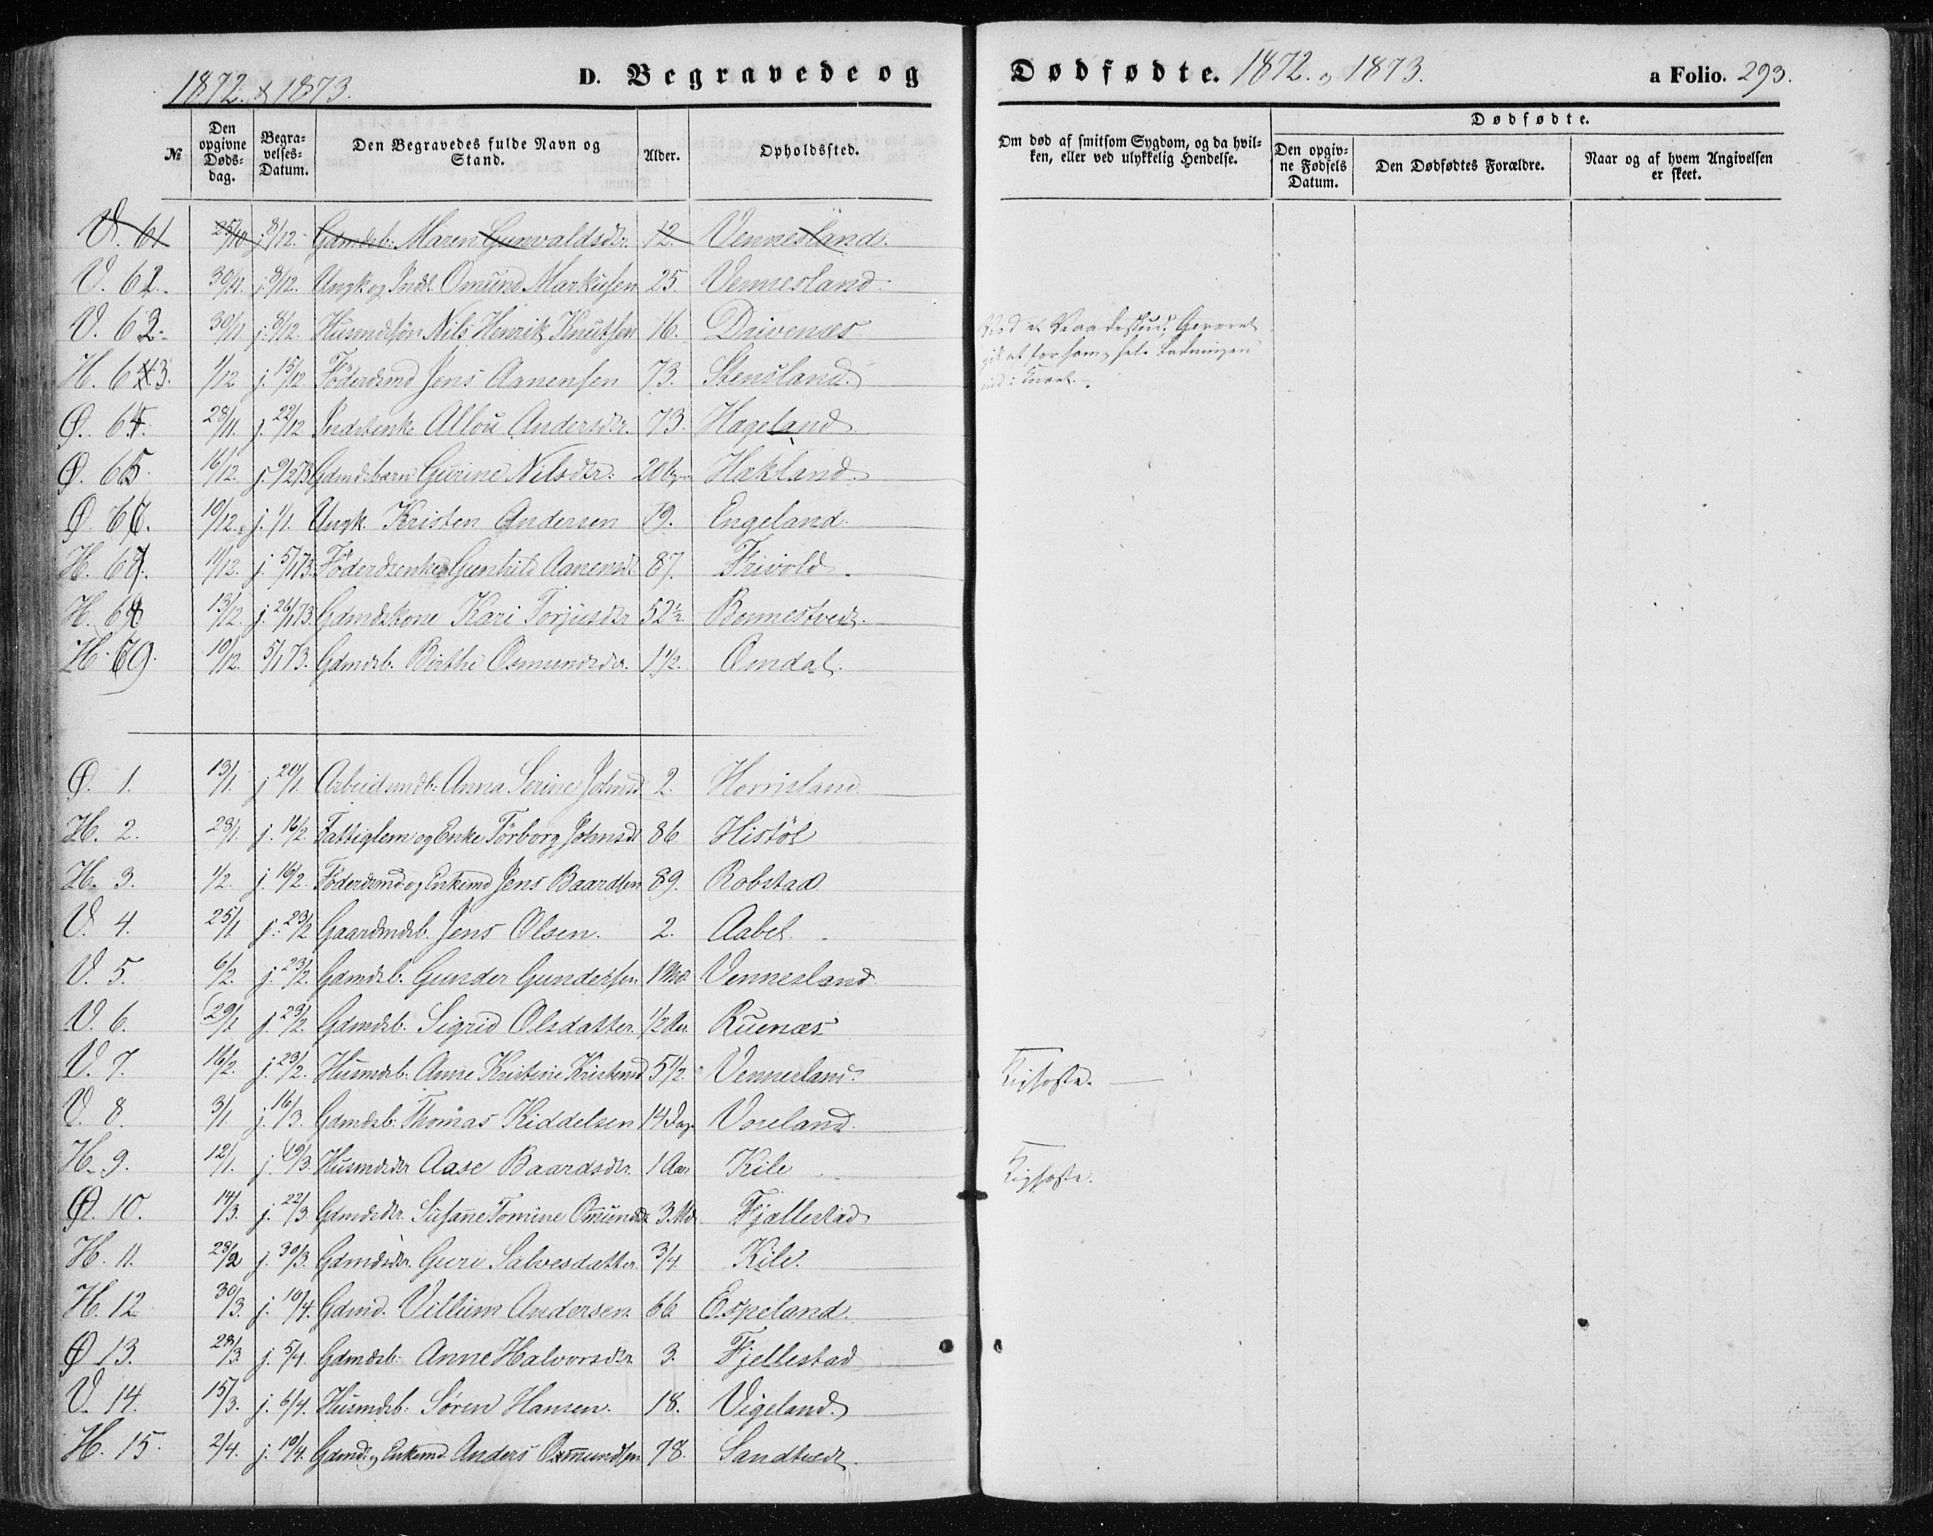 1872. & 1873.
D. Begravede og
Dødfødte. 1872. o 1873.
a Folio. 293.
№
Den opgivne Døds-dag.
Begra-velses-Datum.
Den Begravedes fulde Navn og Stand.
Alder.
Opholdssted.
Om død af smitsom Sygdom, og da hvil-ken, eller ved ulykkelig Hendelse.
Dødfødte.
Den opgiv-ne Fødsels Datum.
Den Dødfødtes Forældre.
Naar og af hvem Angivelsen er skeet.
V. 61 25/10 j. 8/12. Gdmdsb: Maren Gunvaldsdtr. 12. Vennesland.
V. 61. 30/11 j. 8/12. Ungk og Inds. Omund Markusen 25. Vennesland.
V. 62. 30/11 j. 8/12. Husmdssøn Nils Henrik Knutsen 16. Drivenæs
H. 63. 1/12 j. 15/12. Føderdsmd Jens Aanensen 73. Stensland.
Ø. 64. 28/11. j. 22/12 Indstenke Allou Andersdtr. 73. Hageland
Ø. 65. 16/12. j. 9/2 73 Gdmdsbarn Gurine Nilsdtr. Hækland.
Ø. 66. 19/12. j. 1/1. Ungk. Kristen Andersen 19. Engeland.
H. 67. 11/12. j. 5/1 73. Føderdsenke Gunhild Aanensdt 87. Frivold.
H. 68 13/12. j. 26/1 73. Gdmdskone Kari Torjusdtr 52 1/2 Bonnestvedt.
H. 69. 19/12. 5/1 73. Gdmdsb. Birthe Osmundsdtr. 1 1/2. Omdal.
Ø. 1. 13/1. j 20/1. Arbeidsmdb: Anna Serine Johnsd 2. Horrisland.
H. 2. 23/1. j. 16/2. Fattiglem og Enke Torborg Johnsdt 86 Histøl
H. 3. 1/2. j. 16/2. Føderdsmd og Enkemd Jens Baardsen 89. Robstad
V. 4. 25/1 j. 23/2 Gaardmdsb. Jens Olsen. 2. Aabel.
V. 5. 6/2. j. 23/2. Gdmdsb. Gunder Gundersen 1 Md Vennesland
V. 6. 29/1 j. 23/2. Gdmdsb. Sigrid Olsdatter 1/2 Aar Ruenæs
V. 7. 16/2. j. 23/2. Husmdsb. Anne Kristine Kristensd 5 1/2. Vennesland. Kighoste.
V. 8. 3/1. j. 16/3. Gdmdsb: Thomas Kiddelsen 14 Dag Voreland.
H. 9. 12/1. j. 19/3. Husmdsdtr Aase Baardsdtr. 1 Aar Kile Kighoste.
Ø. 10. 14/3. j. 22/3. Gdmdsdtr. Susanne Tomine Omundsdt 3. Md. Fjellestad
H. 11. 28/2 j. 30/3. Gdmdsdtr. Guri Salvesdatter 3/4. Kile.
H. 12 30/3. j. 10/4. Gdmd. Villum Andersen. 66 Espeland.
Ø 13. 28/3. j. 5/4. Gdmdsb: Anne Halvorsdtr. 3. Fjellestad
V. 14. 15/3. j. 6/4. Husmdsb: Søren Hansen. 18. Vigeland.
H. 15. 2/4. j. 10/4. Gdmd. og Enkemd. Anders Osmundsen 78. Sandtvedt.